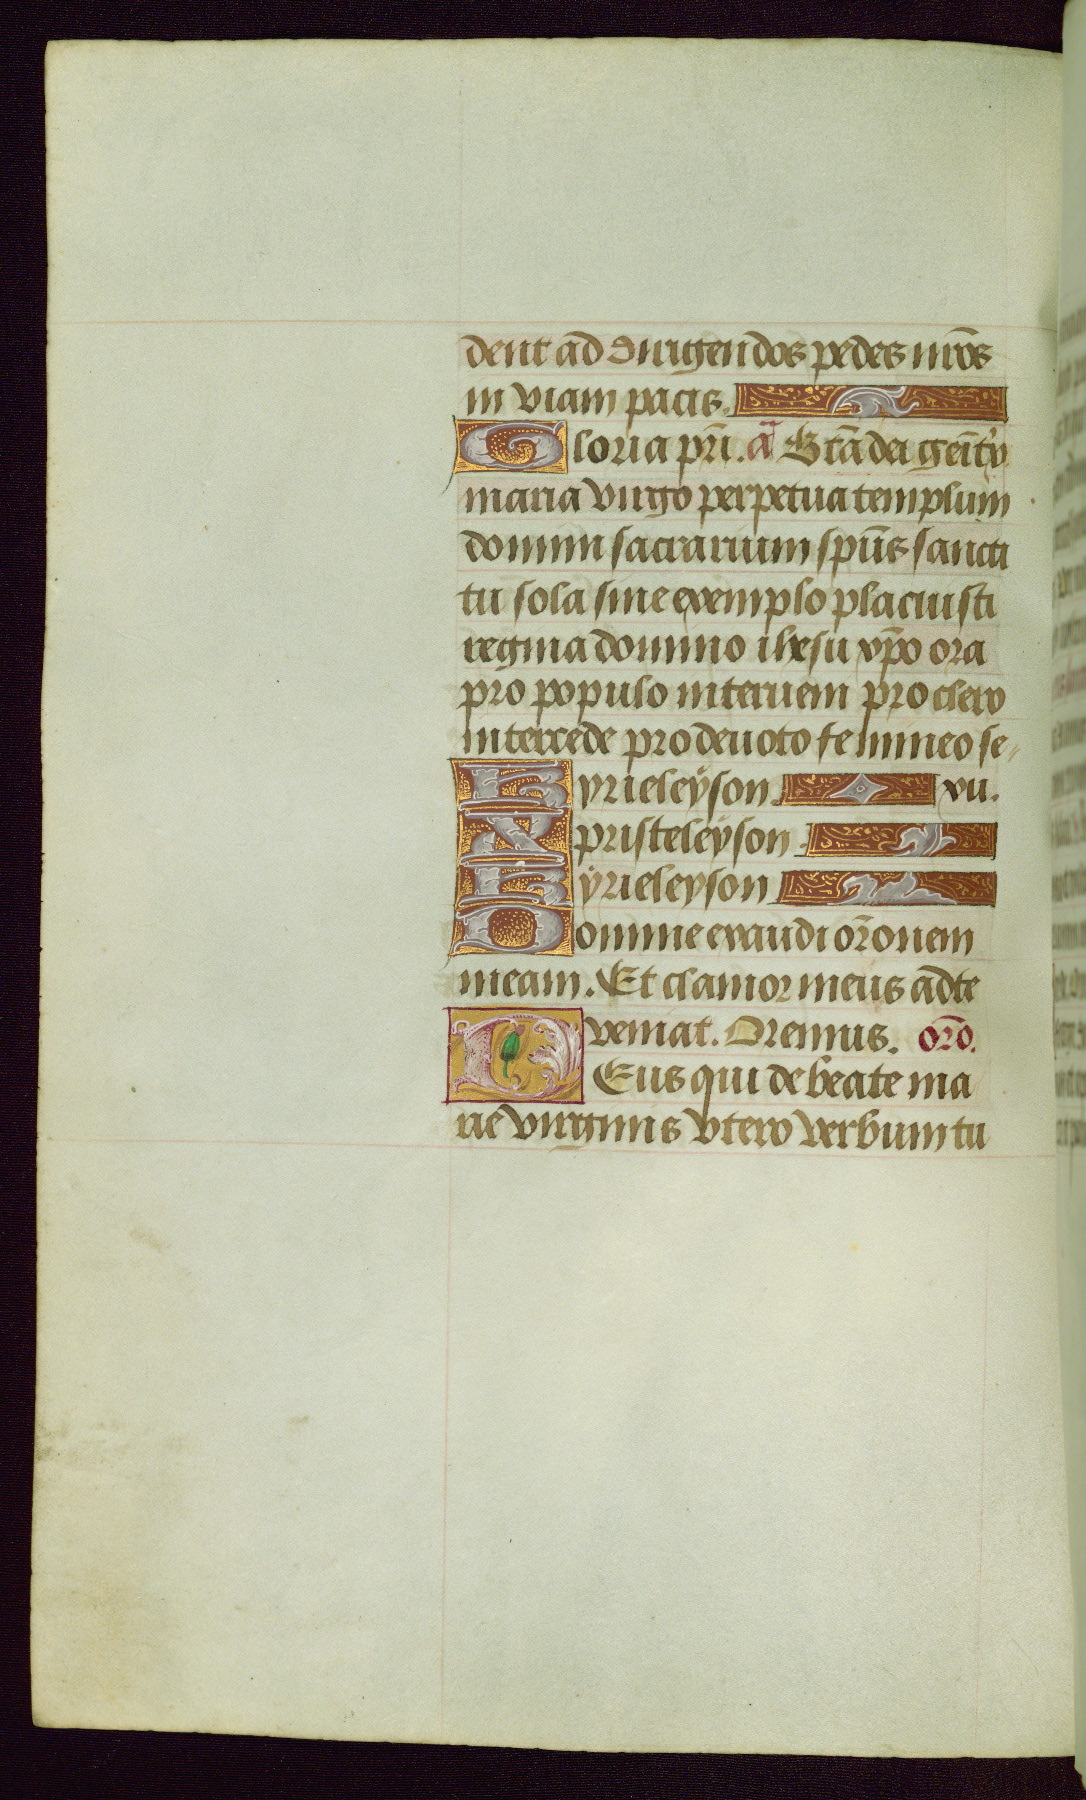 dent ad dirigendos pedes nr̄os
in viam pacis.
Gloria pr̄i. a̅ B̄tā dei geīt'x
maria virgo perpetua templum
domini sacrarium spūs sancti
tu sola sine exemplo placuisti
regina domino ihesu xp̄o ora
pro populo interueni pro clero
intercede pro deuoto femineo se-
Kyrieleÿson xu.
Xpristeleÿson.
Kÿrieleyson
Domine exaudi or̄onem
meam. Et clamor meus ad te
veniat. Oremus. or̄o.
DEus qui de beate ma
rie virginis vtero verbum tu